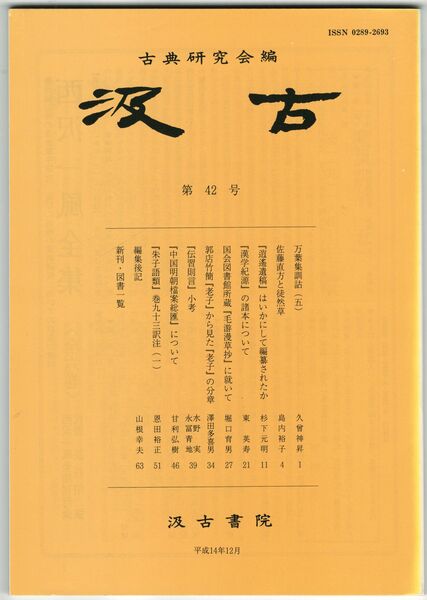 ISSN 0289-2693
古典研究会編
汲古
第 42 号
万葉集訓詁(五) 久曾神昇 1
佐藤直方と徒然草 島内裕子 4
『逍遙遺稿』はいかにして編纂されたか 杉下元明 11
『漢学紀源』の諸本について 東 英寿 21
国会図書館所蔵『毛游漫草抄』に就いて 堀口育男 27
郭店竹簡『老子』から見た『老子』の分章 澤田多喜男 34
『伝習則言』小考 水野 実 永冨青地 39
『中国明朝檔案総匯』について 甘利弘樹 46
『朱子語類』巻九十三訳注(一) 恩田裕正 51
編集後記 山根幸夫 63
新刊・図書一覧
汲古書院
平成14年12月